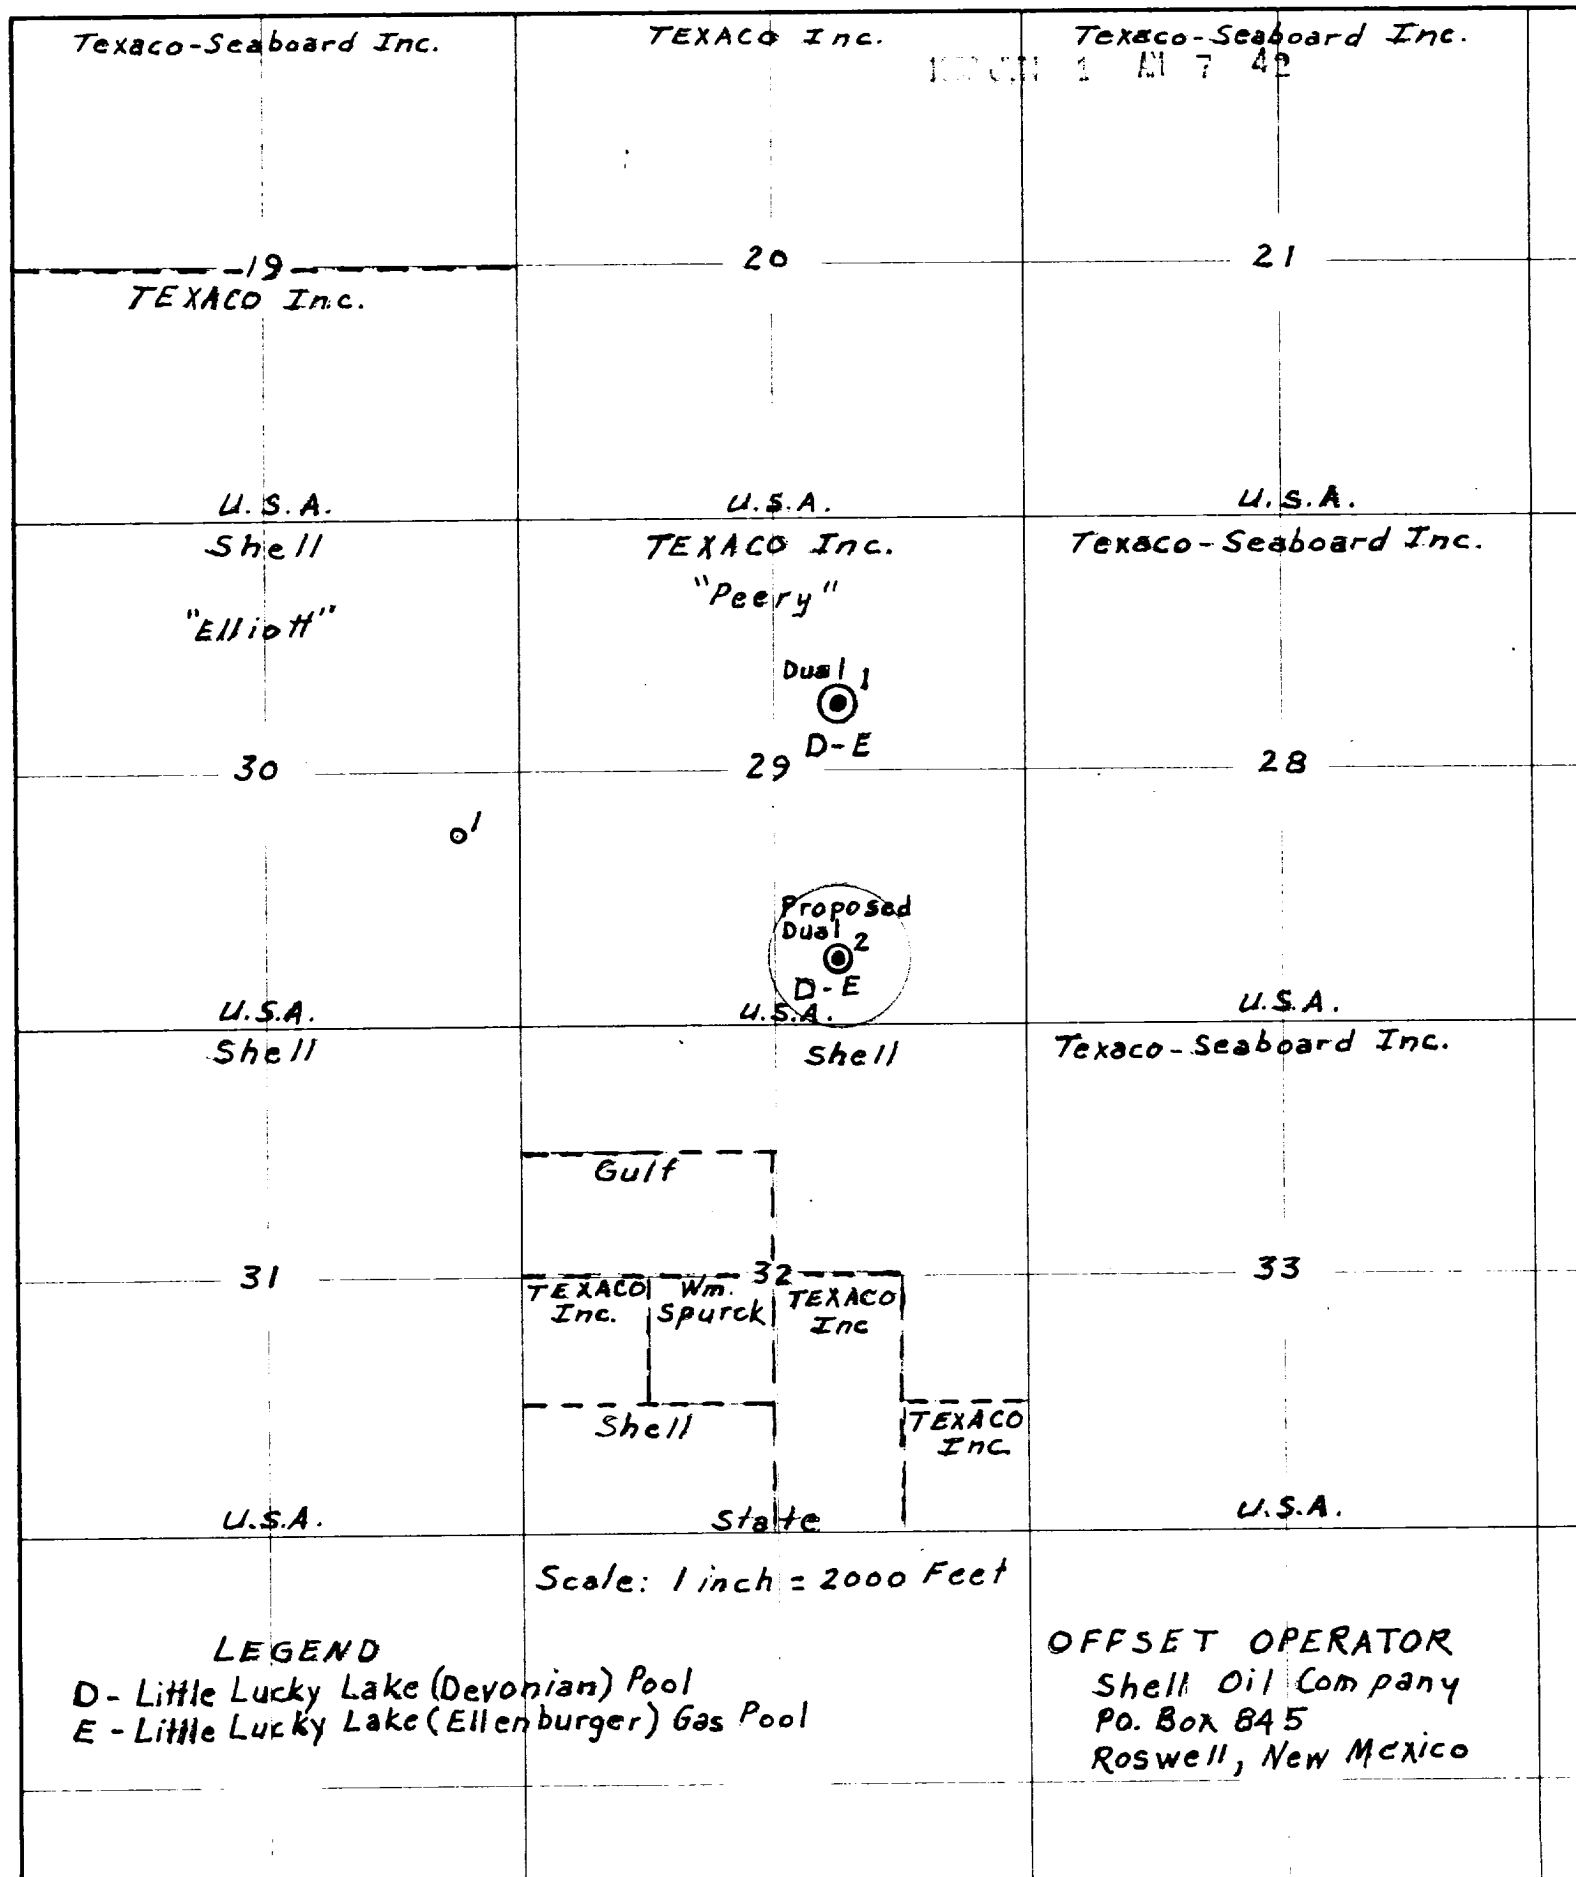 Texaco-Seaboard Inc.
TEXACO Inc.
Texaco-Seaboard Inc.
1 AM 7 42
19
TEXACO Inc.
20
21
U.S.A.
U.S.A.
U.S.A.
Shell
TEXACO Inc.
Texaco-Seaboard Inc.
"Elliott"
"Peery"
Dual 1
D-E
30
29
28
1
Proposed
Dual 2
D-E
U.S.A.
U.S.A.
U.S.A.
Shell
Shell
Texaco-Seaboard Inc.
Gulf
31
32
33
TEXACO
Inc.
Wm.
Spurck
TEXACO
Inc
Shell
TEXACO
Inc.
U.S.A.
State
U.S.A.
Scale: 1 inch = 2000 Feet
LEGEND
D - Little Lucky Lake (Devonian) Pool
E - Little Lucky Lake (Ellenburger) Gas Pool
OFFSET OPERATOR
Shell Oil Company
P.O. Box 845
Roswell, New Mexico